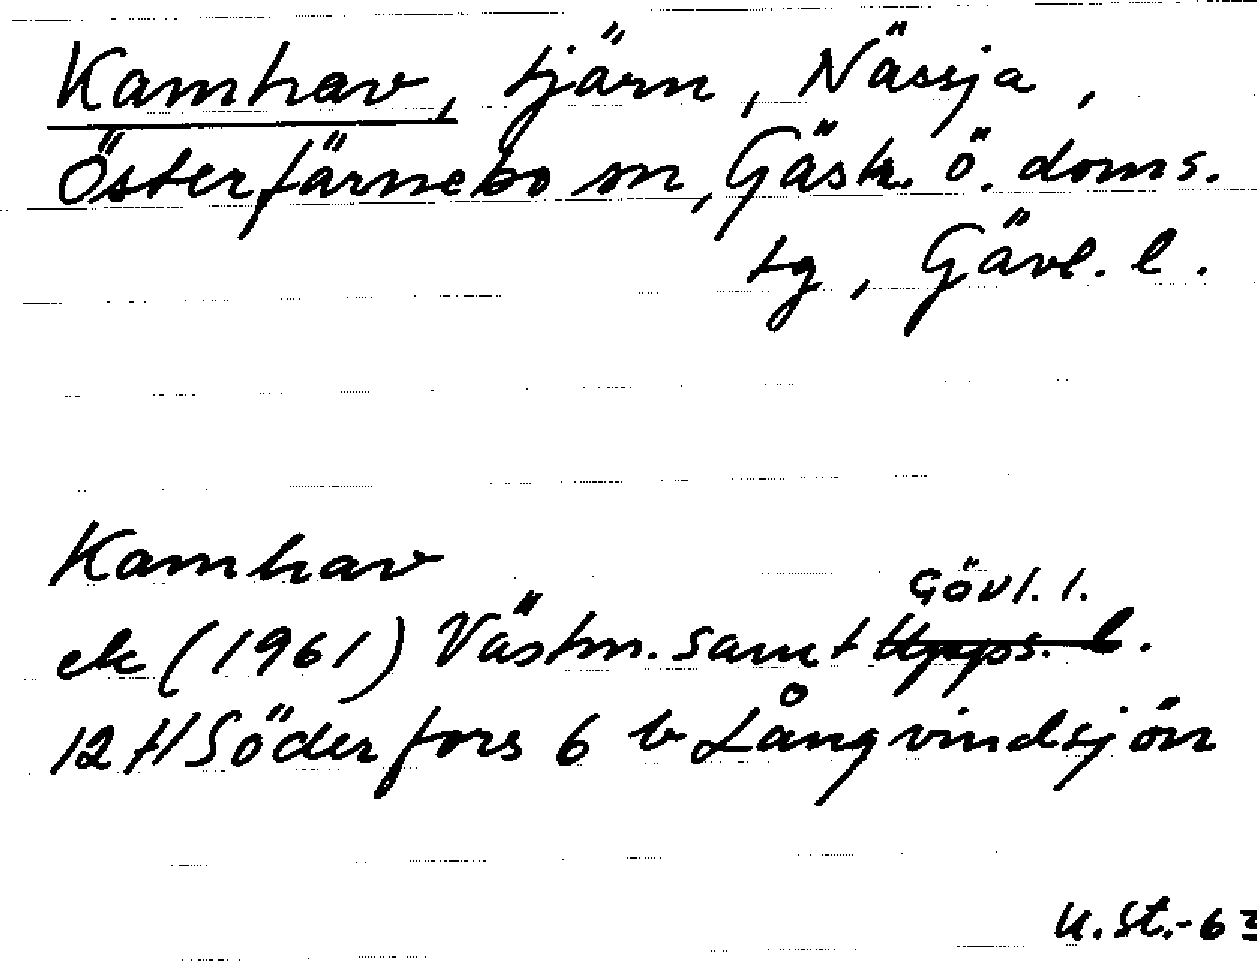 Kamhav, tjärn, Nässja,
Österfärnebo sn, Gästr. ö. doms.
tg, Gävl. l.
Kamhav
ek (1961) Västm. samt Gävl. l. Upps. l.
12 H Söderfors 6 b Långvindsjön
U. St.-63